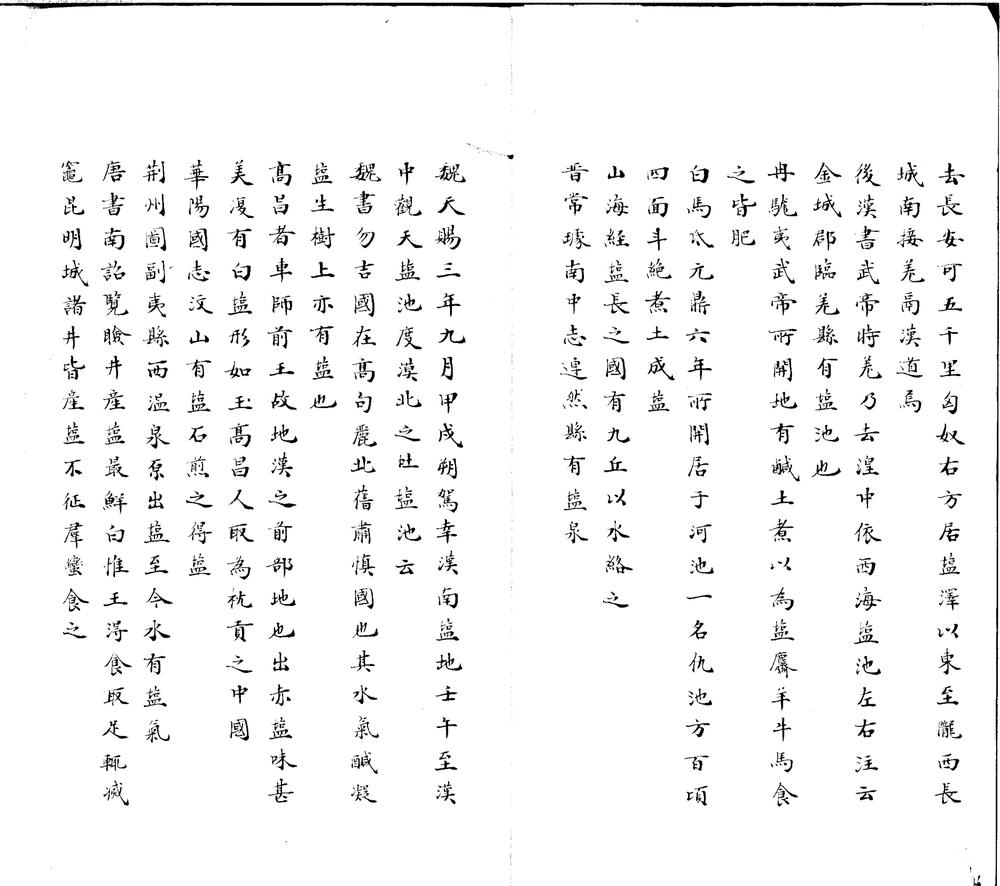 去長安可五千里匈奴右方居塩澤以東至隴西長
城南接羌鬲漢道焉
後漢書武帝時羌乃去湟中依西海塩池左右注云
金城郡臨羌縣有塩池也
冉駹夷武帝所開地有鹹土煮以為塩麡羊牛馬食
之皆肥
白馬氐元鼎六年所開居于河池一名仇池方百頃
四面斗絶煮土成塩
山海經塩長之國有九丘以水絡之
晋常璩南中志連然縣有塩泉
魏天賜三年九月甲戌朔駕幸漠南塩地壬午至漠
中觀天塩池度漠北之吐塩池云
魏書勿吉國在高句麗北舊肅慎國也其水氣鹹凝
塩生樹上亦有塩也
高昌者車師前王故地漢之前部地也出赤塩味甚
美復有白塩形如玉高昌人取為枕貢之中國
華陽國志汶山有塩石煎之得塩
荆州圖副夷縣西温泉原出塩至今水有塩氣
唐書南詔覽瞼井産塩最鮮白惟王淂食取足輒滅
竈昆明城諸井皆産塩不征羣蠻食之